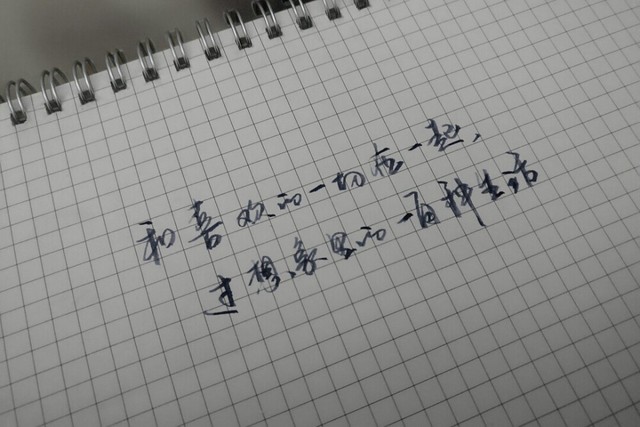 和喜欢的一切在一起,
过想象里的一百种生活